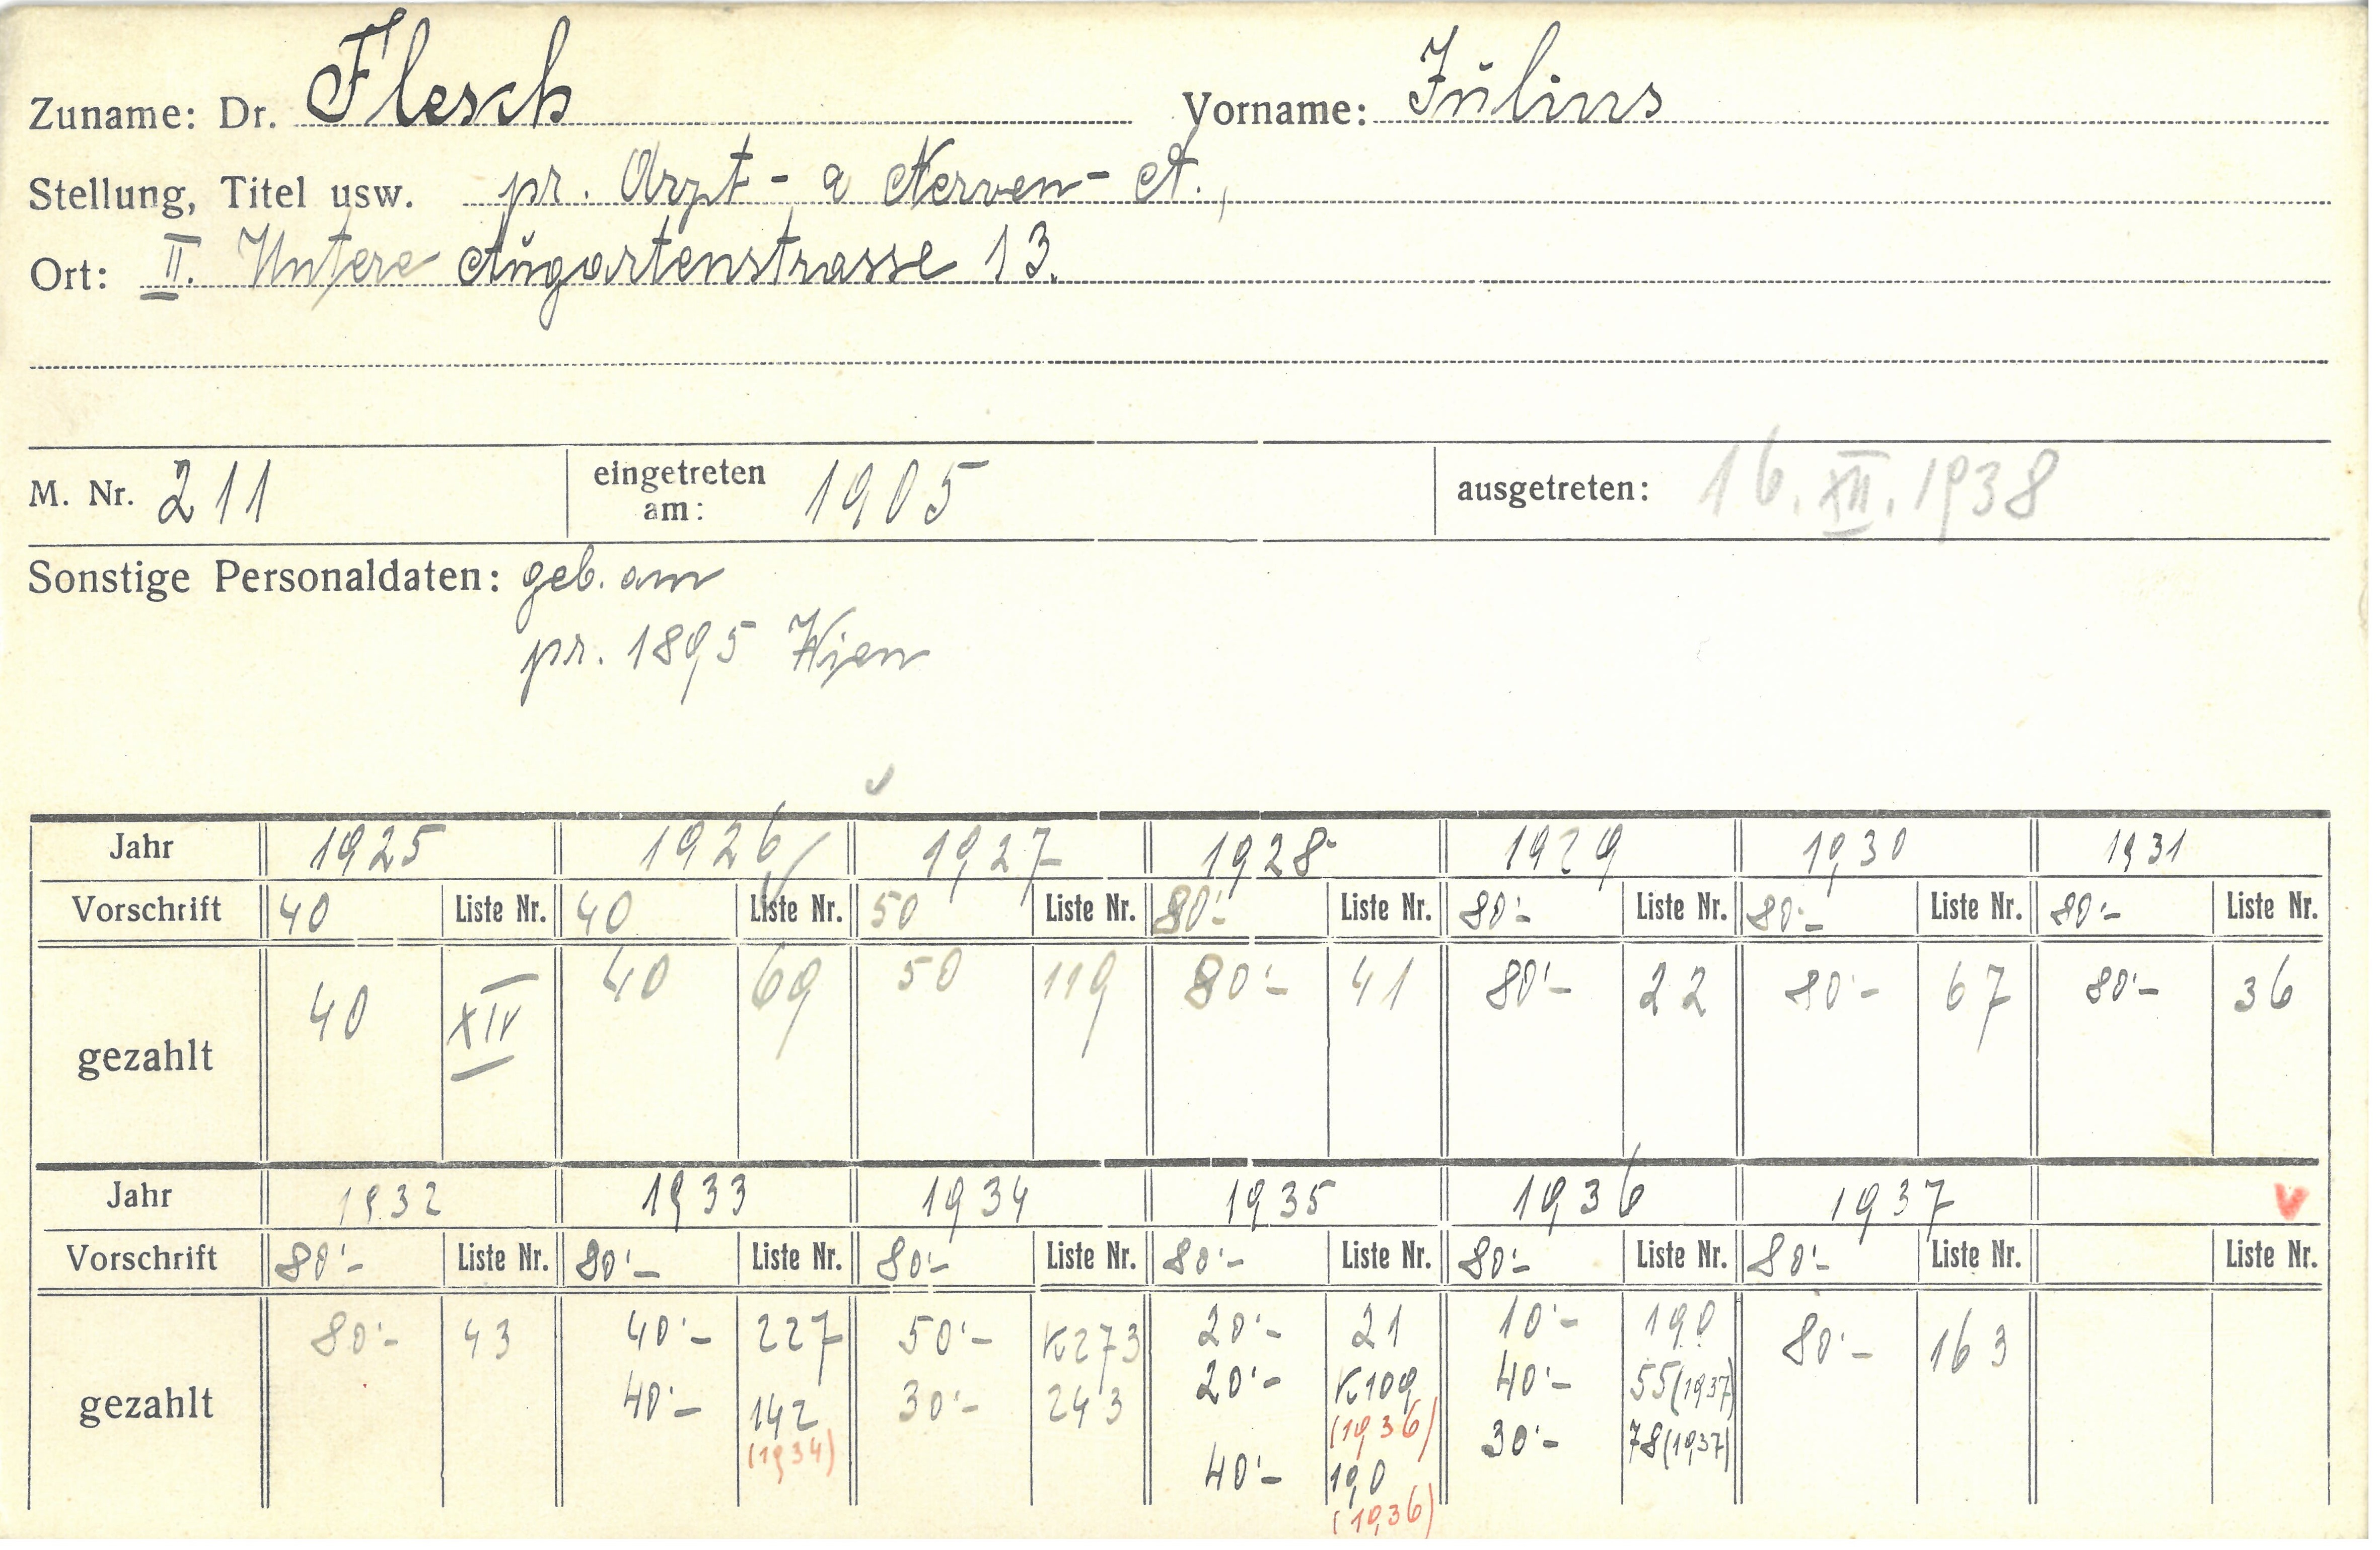 Zuname: Dr. Flesch Vorname: Julius
Stellung, Titel usw. pr. Arzt - a Nerven - A.,
Ort: II. Untere Augartenstrasse 13.
M. Nr. 211 eingetreten am: 1905 ausgetreten: 16. XII. 1938
Sonstige Personaldaten: geb. am
pr. 1895 Wien
Jahr 1925 1926 1927 1928 1929 1930 1931
Vorschrift 40 Liste Nr. 40 Liste Nr. 50 Liste Nr. 80'- Liste Nr. 80'- Liste Nr. 80'- Liste Nr. 80'- Liste Nr.
gezahlt 40 XIV 40 69 50 119 80'- 41 80'- 22 80'- 67 80'- 36
Jahr 1932 1933 1934 1935 1936 1937 v
Vorschrift 80'- Liste Nr. 80'- Liste Nr. 80'- Liste Nr. 80'- Liste Nr. 80'- Liste Nr. 80'- Liste Nr. Liste Nr.
80'- 43 40'- 227 50'- K273 20'- 21 10'- 190 80'- 163
gezahlt 40'- 142 30'- 243 20'- K109 40'- 55(1937)
(1934) (1936) 30'- 78(1937)
40'- 190
(1936)